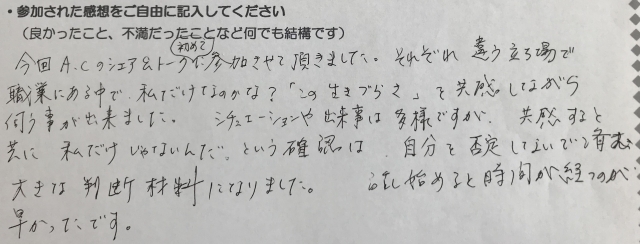 ・参加された感想をご自由に記入してください
（良かったこと、不満だったことなど何でも結構です）
初めて
今回 A.C のシェア&トークに参加させて頂きました。それぞれ 違う立場で
職業にある中で、私だけなのかな?「この生きづらさ」を共感しながら
伺う事が出来ました。 シチュエーションや出来事は多様ですが、共感すると
共に 私だけじゃないんだ。という確認は、自分を否定しないで済む
大きな判断材料になりました。 話し始めると時間が経つのが
早かったです。